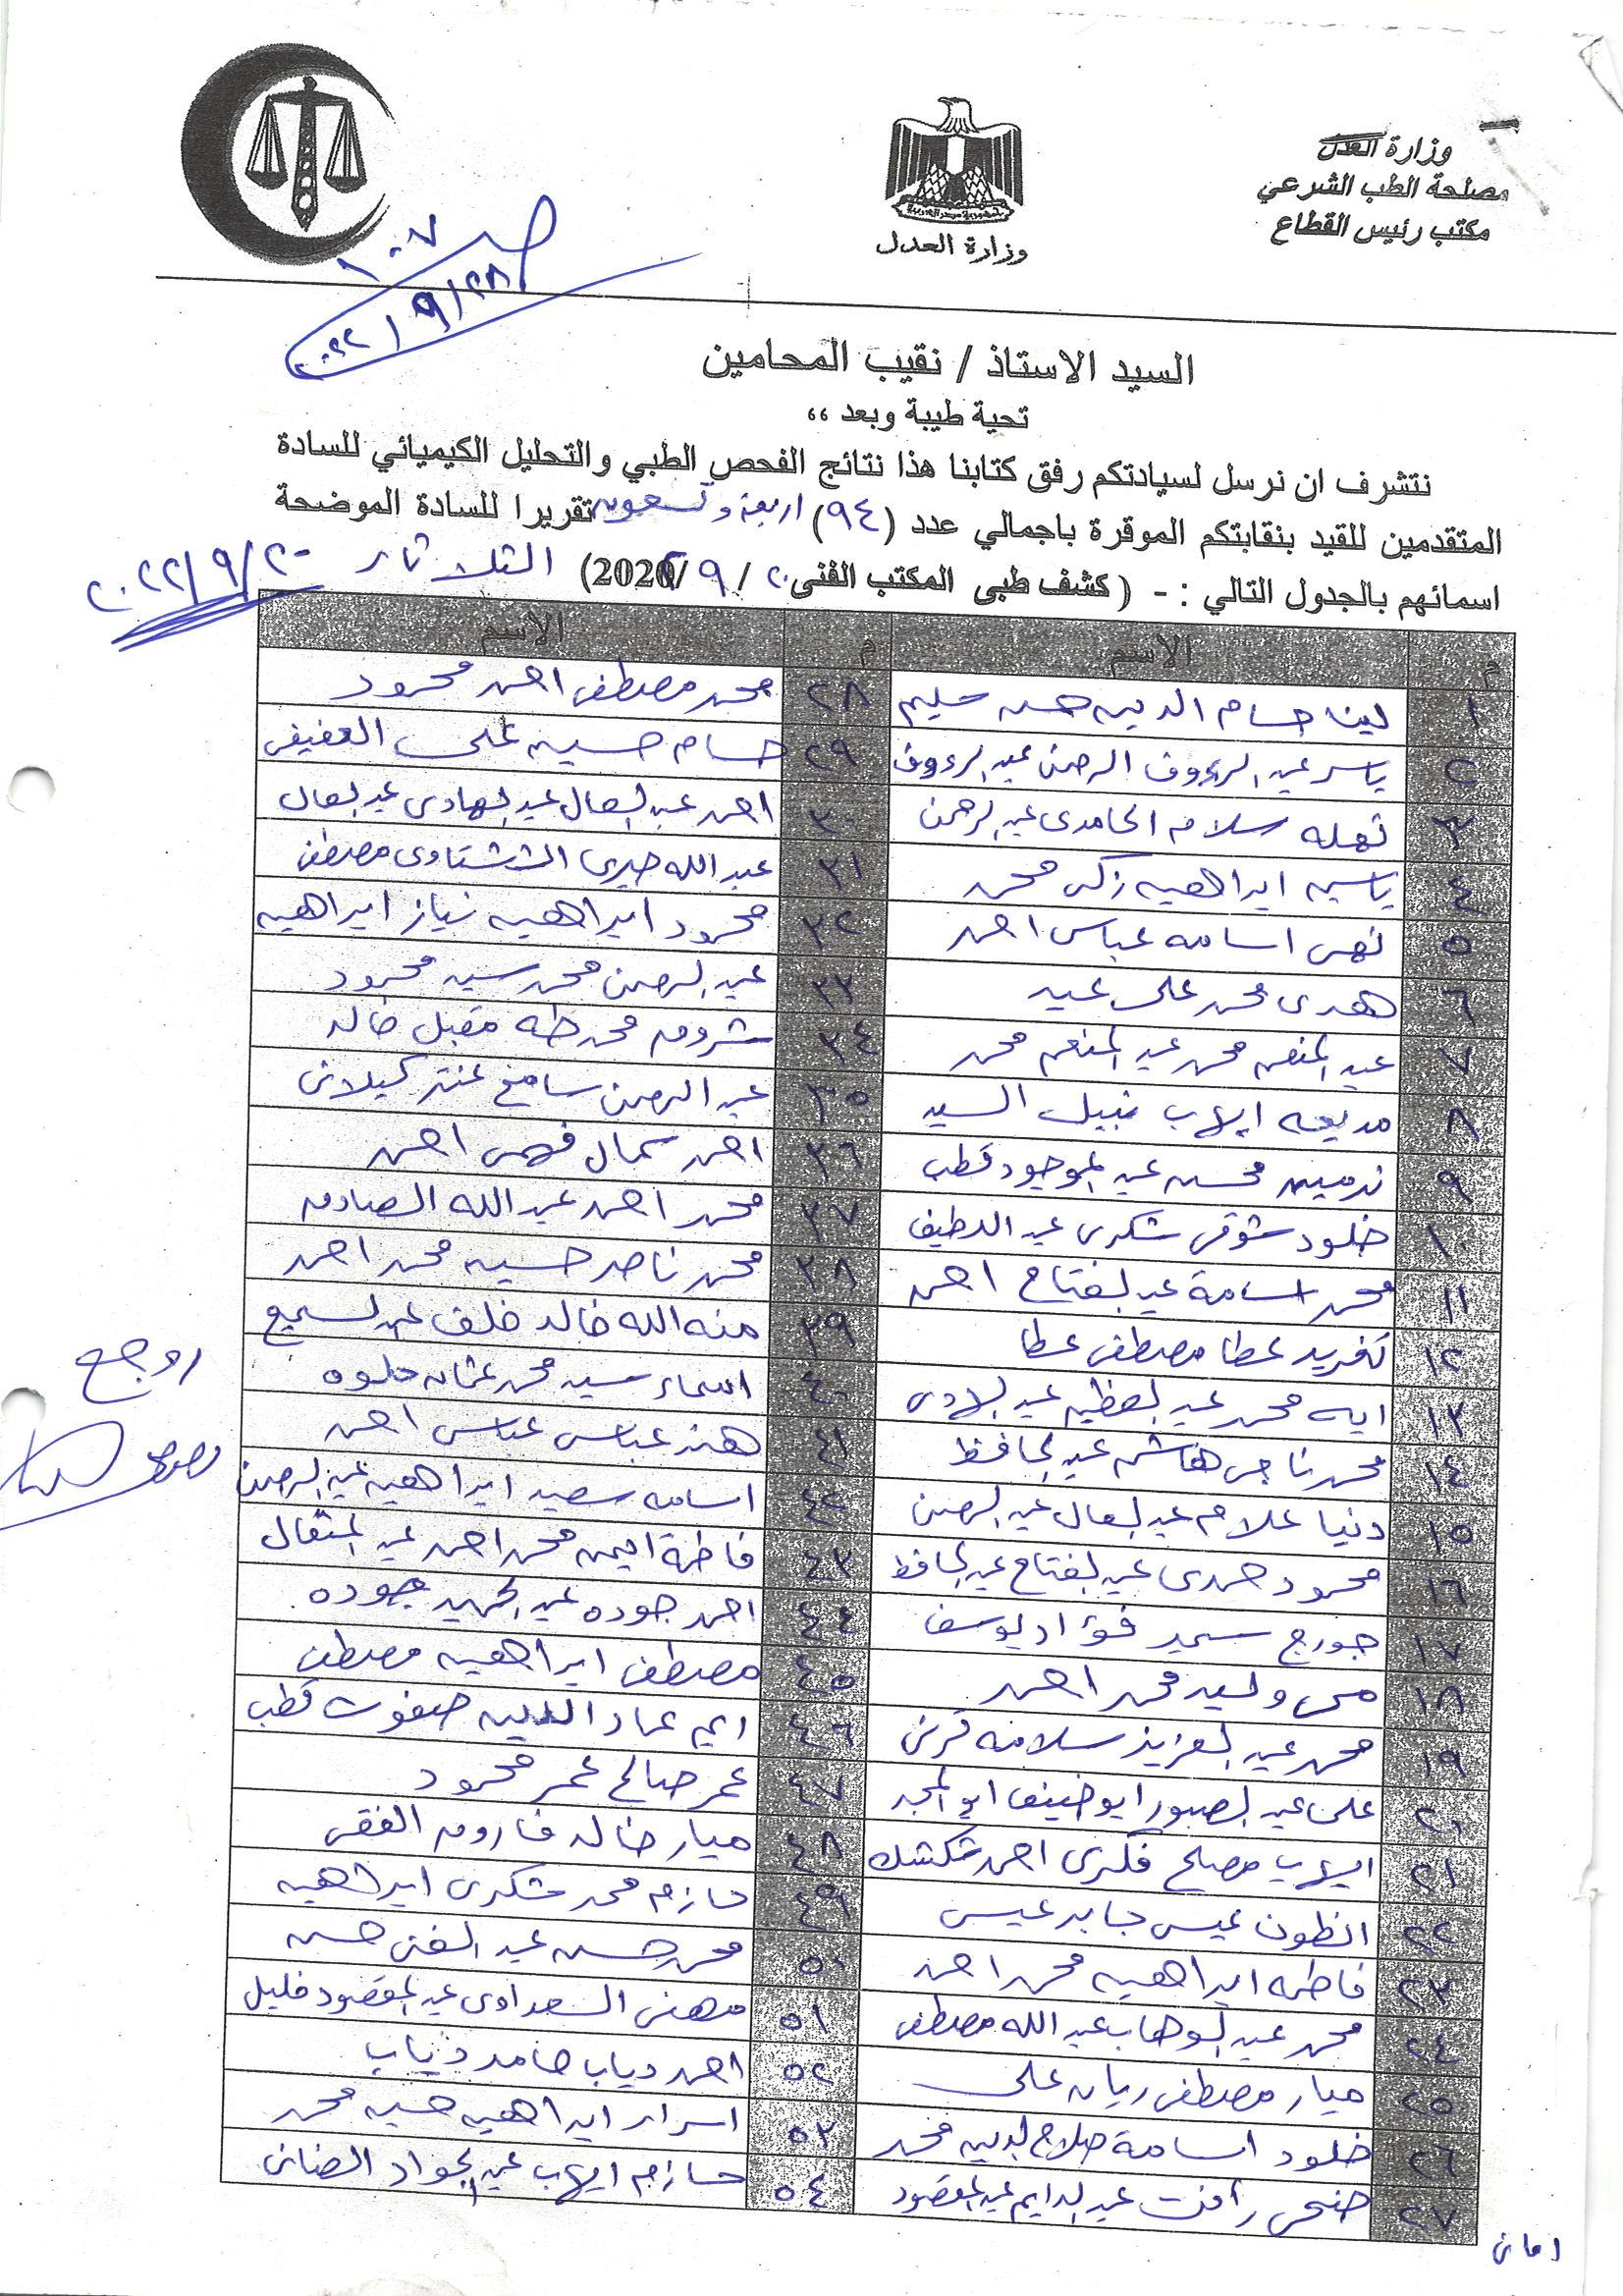 وزارة العدل
مصلحة الطب الشرعي
مكتب رئيس القطاع
جمهورية مصر العربية
وزارة العدل
١٠٠٧
٢٠٢٢/٩/٢٨
السيد الاستاذ / نقيب المحامين
تحية طيبة وبعد ،،
نتشرف ان نرسل لسيادتكم رفق كتابنا هذا نتائج الفحص الطبي والتحليل الكيميائي للسادة
المتقدمين للقيد بنقابتكم الموقرة باجمالي عدد (٩٤) اربعة وتسعون تقريرا للسادة الموضحة
اسمائهم بالجدول التالي : - ( كشف طبى المكتب الفنى ٢٠ / ٩ / 202) الثلاثاء ٢٠٢٢/٩/٢٠
م الاسم م الاسم
١ لينا حسام الدين حسن سليم ٢٨ محمد مصطفى احمد محمود
٢ ياسر عبد الرءوف الرحمن عبد الرءوف ٢٩ حسام حسين على العفيفى
٣ نهله سلام الحامدى عبد الرحمن ٣٠ احمد عبد العال عبد الهادى عبد العال
٤ ياسين ابراهيم زكى محمد ٣١ عبد الله صبرى الششتاوى مصطفى
٥ نهى اسامه عباس احمد ٣٢ محمود ابراهيم نياز ابراهيم
٦ هدى محمد على عيد ٣٣ عبد الرحمن محمد سيد محمود
٧ عبد المنعم محمد عبد المنعم محمد ٣٤ شروق محمد طه مقبل خالد
٨ مديحه ايهاب نبيل السيد ٣٥ عبد الرحمن سامح عنتر كيلانى
٩ نرمين محسن عبد الموجود قطب ٣٦ احمد كمال فهمى احمد
١٠ خلود شوقى شكرى عبد اللطيف ٣٧ محمد احمد عبد الله الصادق
١١ محمد اسامة عبد الفتاح احمد ٣٨ محمد ناصر حسين محمد احمد
١٢ تغريد عطا مصطفى عطا ٣٩ منه الله خالد خلف عبد السميع
١٣ ايه محمد عبد العظيم عبد الهادى ٤٠ اسماء سيد محمد عثمان حلوه
١٤ محمد ناجى هاشم عبد الحافظ ٤١ هند عباس عباس احمد
١٥ دنيا علام عبد العال عبد الرحمن ٤٢ اسامه سعيد ابراهيم عبد الرحمن
١٦ محمود حمدى عبد الفتاح عبد الحافظ ٤٣ فاطمة ايمن محمد احمد عبد المتعال
١٧ جورج سمير فؤاد يوسف ٤٤ احمد جوده عبد الحميد جوده
١٨ مى وليد محمد احمد ٤٥ مصطفى ابراهيم مصطفى
١٩ محمد عبد العزيز سلامه قرنى ٤٦ عماد الدين صفوت قطب
٢٠ على عبد الصبور ابو ضيف ابو المجد ٤٧ عمر صالح عمر محمود
٢١ ايهاب مصلح فكرى احمد ٤٨ ميار خالد فاروق الفقى
٢٢ انطون عيسى جابر عيسى ٤٩ حازم محمد شكرى ابراهيم
٢٣ فاطمه ابراهيم محمد احمد ٥٠ محمد حسن عبد الغنى حسن
٢٤ محمد عبد الوهاب عبد الله مصطفى ٥١ مهنى السعداوى عبد المقصود خليل
٢٥ ميار مصطفى ريان على ٥٢ احمد دياب حامد دياب
٢٦ خلود اسامة صلاح الدين محمد ٥٣ اسراء ابراهيم حسين محمد
٢٧ ضحى رأفت عبد الدايم عبد المقصود ٥٤ حازم ايهاب عبد الجواد
روجع
امانى